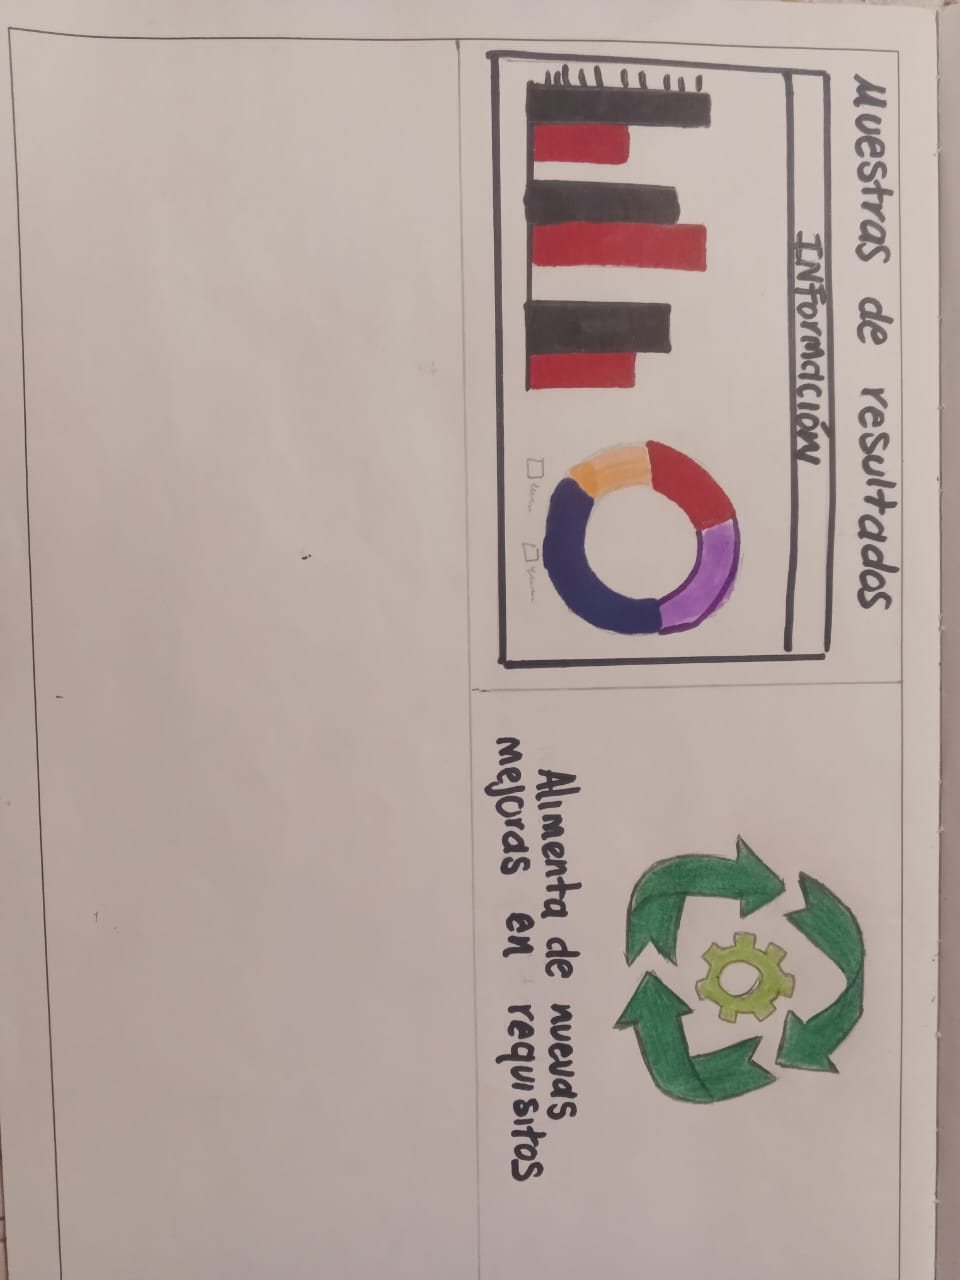 Muestras de resultados
INFormacIóN
Alimenta de nuevas
mejoras en requisitos